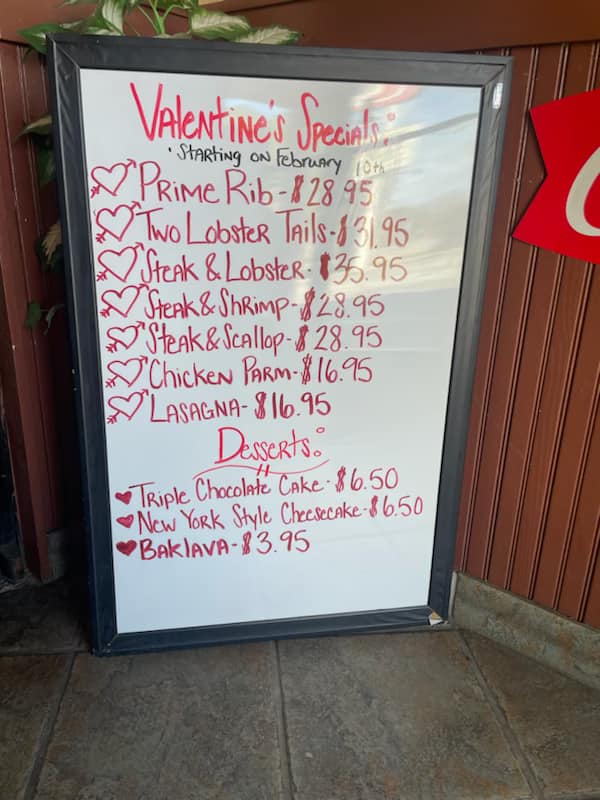 Valentine's Specials:
• Starting on February 10th
Prime Rib - $28.95
Two Lobster Tails - $31.95
Steak & Lobster - $35.95
Steak & Shrimp - $28.95
Steak & Scallop - $28.95
Chicken Parm - $16.95
Lasagna - $16.95
Desserts:
Triple Chocolate Cake - $6.50
New York Style Cheesecake - $6.50
Baklava - $3.95